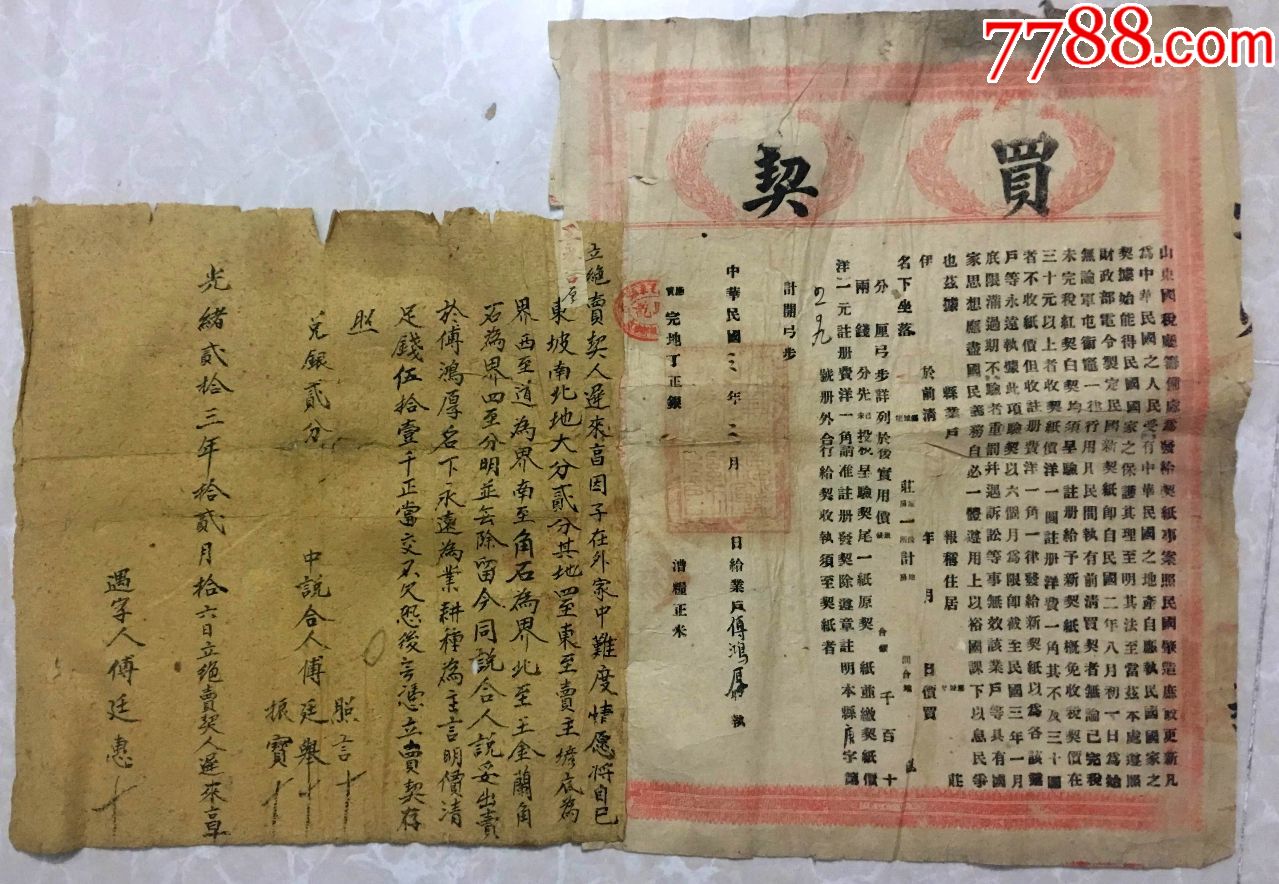 7788.com
買契
山東國稅廳籌備處為發給契紙事案照民國肇造庶政更新凡
為中華民國之人民受有中華民國之地產自應執民國國家之
契據始能得民國國家之保護其理至明其法至當茲本處遵照
財政部電令製定民國新契紙即自民國二年八月初一日為始
無論軍屯衛竈一律行用凡民間執有前清買契者無論已完稅
未完稅紅契白契均須呈驗註册給予新契紙概免收稅契價在
三十元以上者收契紙價洋一圓註册洋費一角其不及三十圓
者不收紙價但收註册費洋一角一律發給新契紙以為各該業
戶等永遠執據此項驗契以六個月為限即截至民國三年一月
底限滿過期不驗者重罰并遇訴訟等事無效該業戶等具有國
家思想應盡國民義務自必一體遵用上以裕國課下以息民爭
也茲據 縣業戶 報稱住居 莊
伊 於前清 年 月 日價買
名下坐落 莊 一 計
分 厘弓步詳列於後實用價 千百十
兩 錢 分先投稅呈驗契尾一紙原契 紙並繳契紙價
洋一元註册費洋一角請准註册發契除遵章註明本縣 字號
號册外合行給契收執須至契紙者
計開弓步
中華民國三年三月 日給業戶傅鴻厚執
實完地丁正銀 漕糧正米
立絕賣契人遲來亯因子在外家中難度情愿將自己
東坡南北地大分貳分其地四至東至賣主 底為
界西至道為界南至角石為界北至王金蘭角
石為界四至分明並無除留今同說合人說妥出賣
於傅鴻厚名下永遠為業耕種為主言明價清
足錢伍拾壹千正當交不欠恐後無憑立賣契存
照
兌銀貳分 中說合人傅廷舉十 照言十 振寶十
光緒貳拾三年拾貳月拾六日立絕賣契人遲來亯
遇字人傅廷惠十